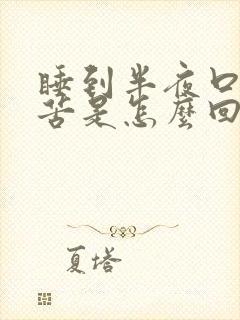 睡到半夜口
苦是怎麼回
夏塔